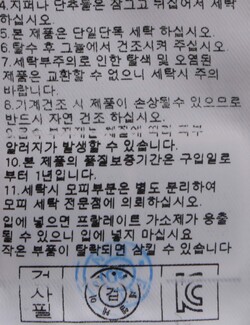 4.지퍼나 단추물은 잠그고 뒤집어서 세탁
하십시오.
5.본 제품은 단일단독 세탁 하십시오.
6.탈수 후 그늘에서 건조시켜 주십시오
7.세탁부주의로 인한 탈색 및 오염된
제품은 교환할 수 없으니 세탁시 주의
바랍니다.
8.기계건조 시 제품이 손상될수 있으므로
반드시 자연 건조 하십시오.
알러지가 발생할 수 있습니다.
10.본 제품의 품질보증기간은 구입일로
부터 1년입니다.
11.세탁시 모피부분은 별도 분리하여
모피 세탁 전문점에 의뢰하십시오.
입에 넣으면 프탈레이트 가소제가 용출
될 수 있으니 입에 넣지 마십시요
작은 부품이 탈락되면 삼킬 수 있습니다
검사필
검